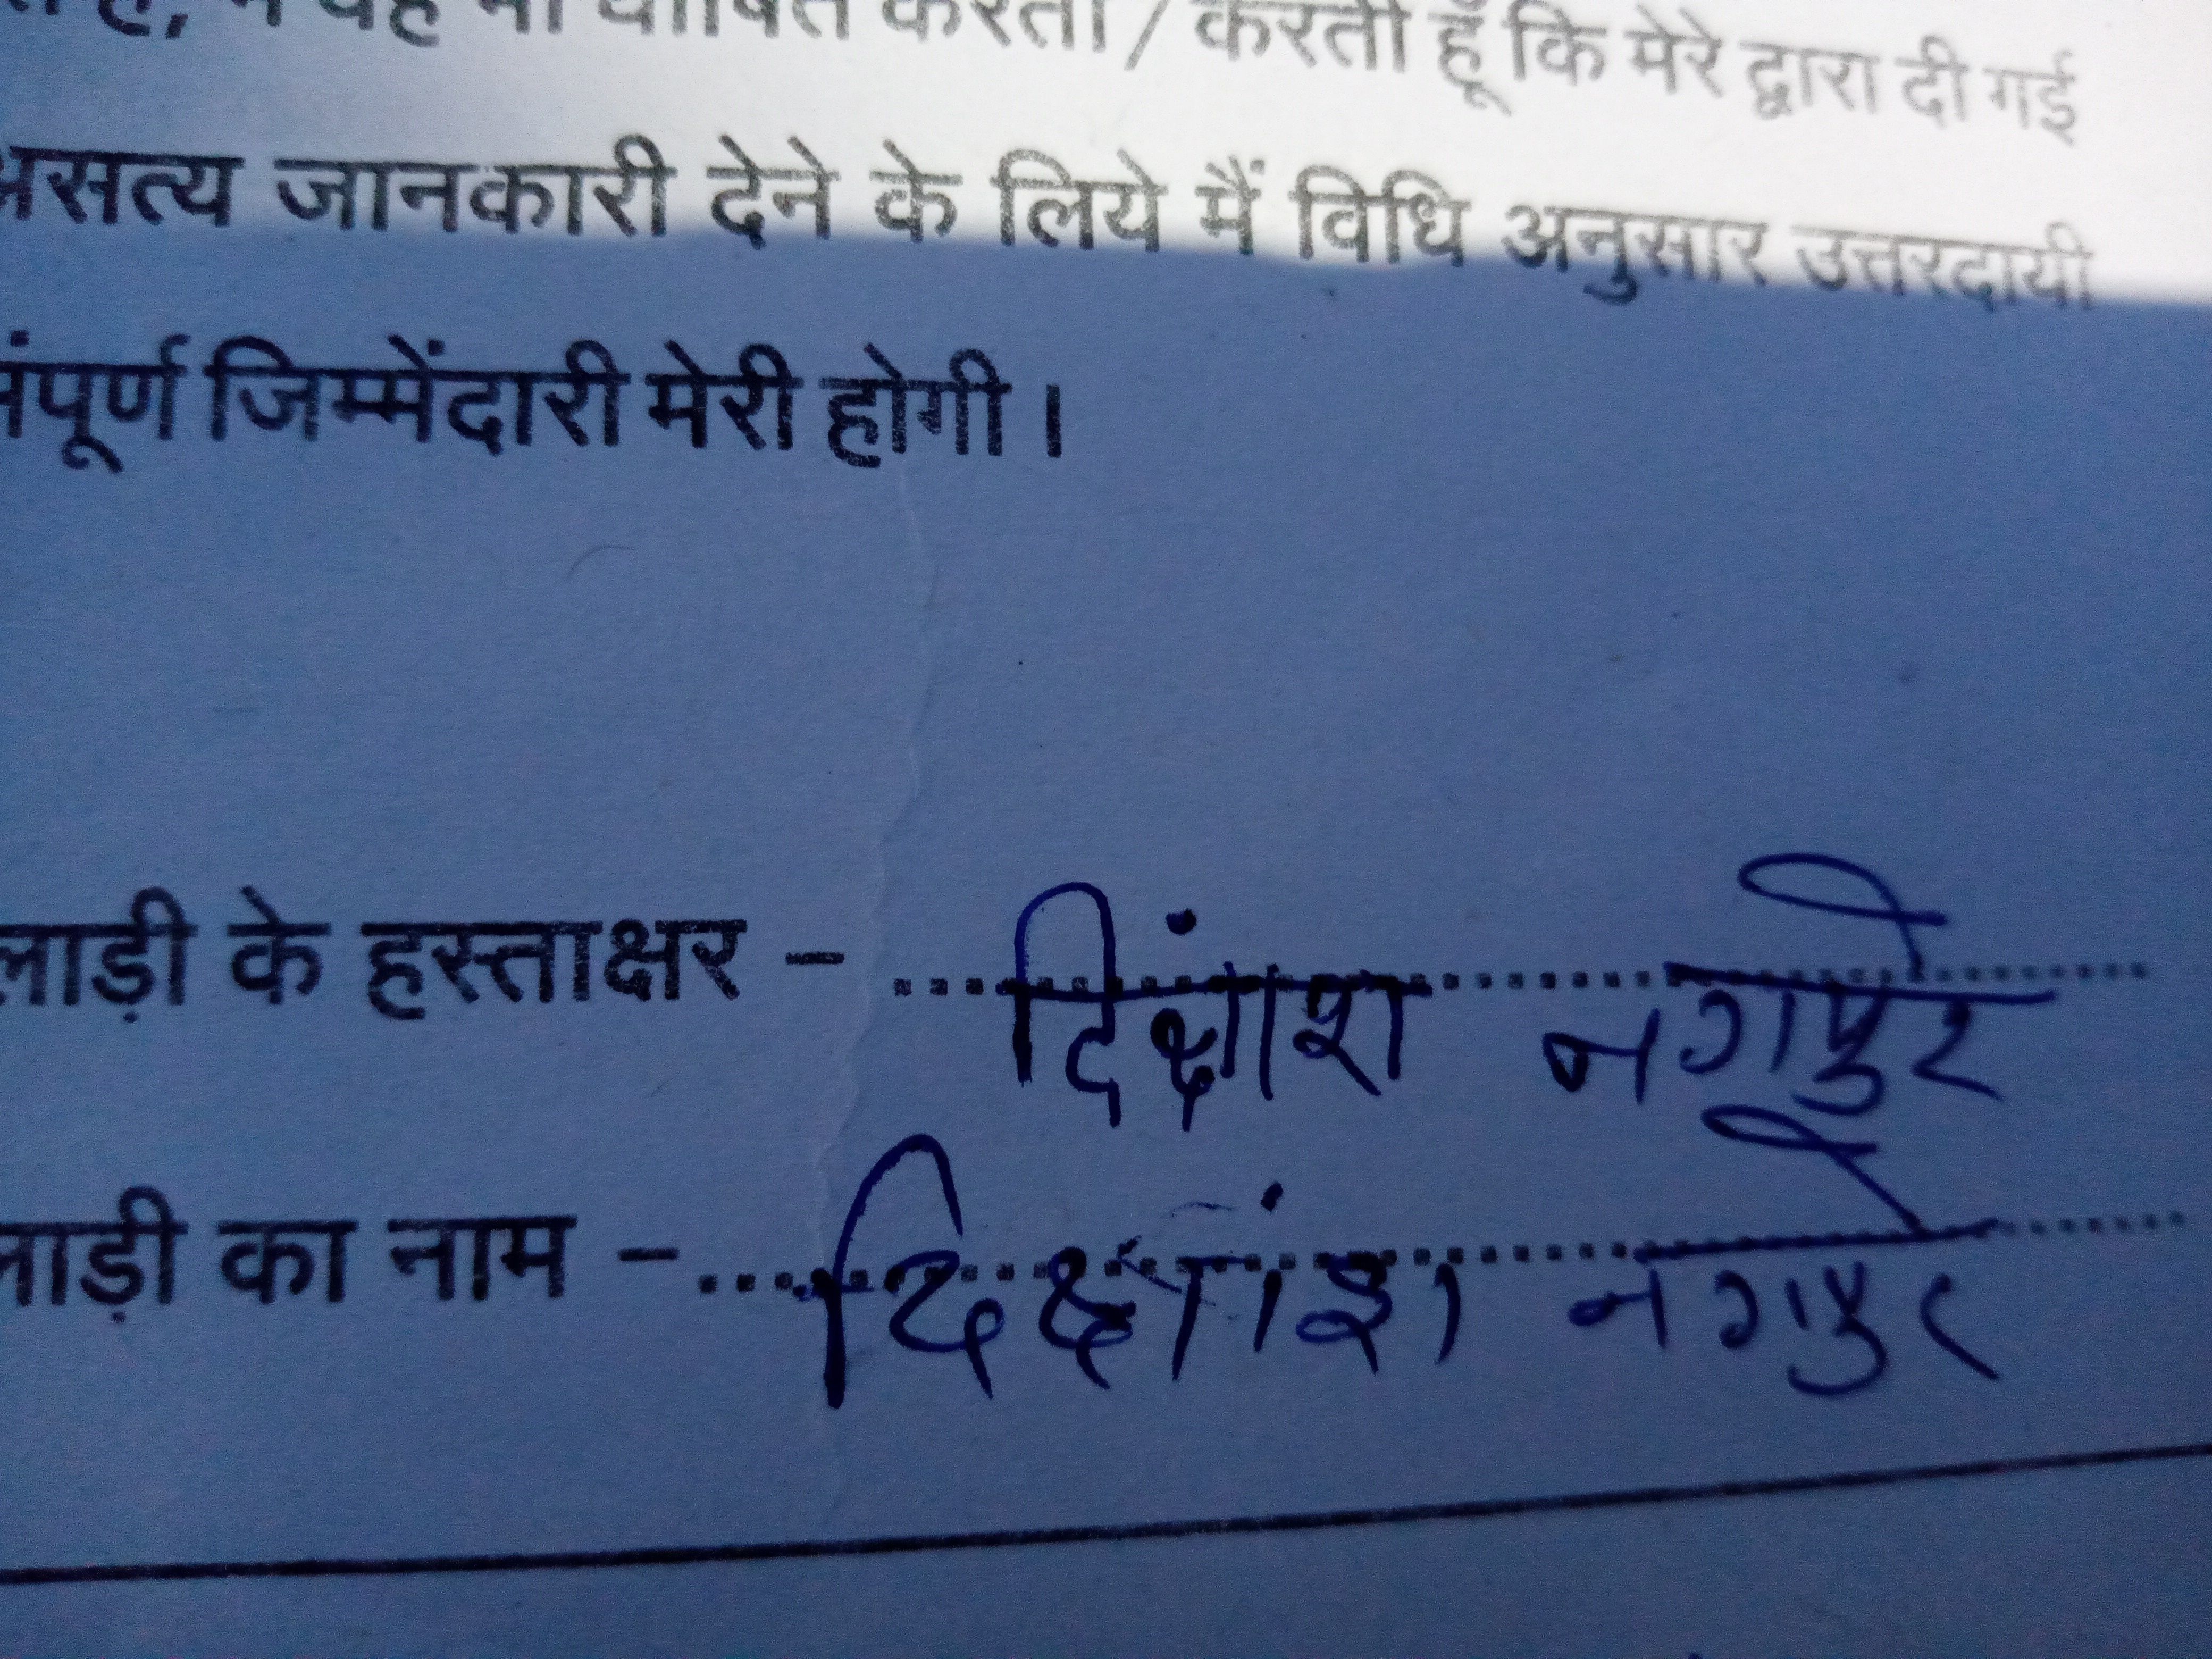 में यह भी घोषित करता / करती हूँ कि मेरे द्वारा दी गई
असत्य जानकारी देने के लिये मैं विधि अनुसार उत्तरदायी
संपूर्ण जिम्मेंदारी मेरी होगी।
लाड़ी के हस्ताक्षर - दिक्षांश नगपुरे
लाड़ी का नाम - दिक्षांश नगपुरे